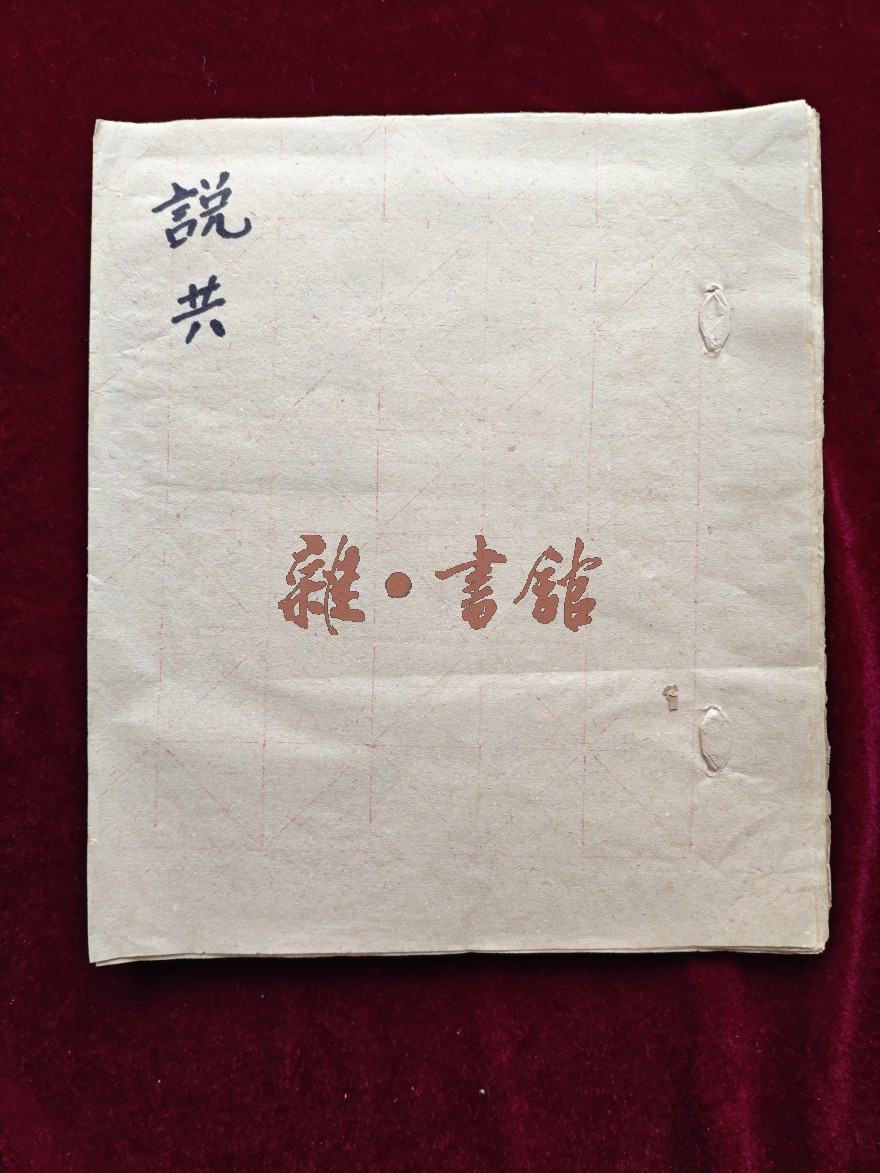 説
共
雜·書館